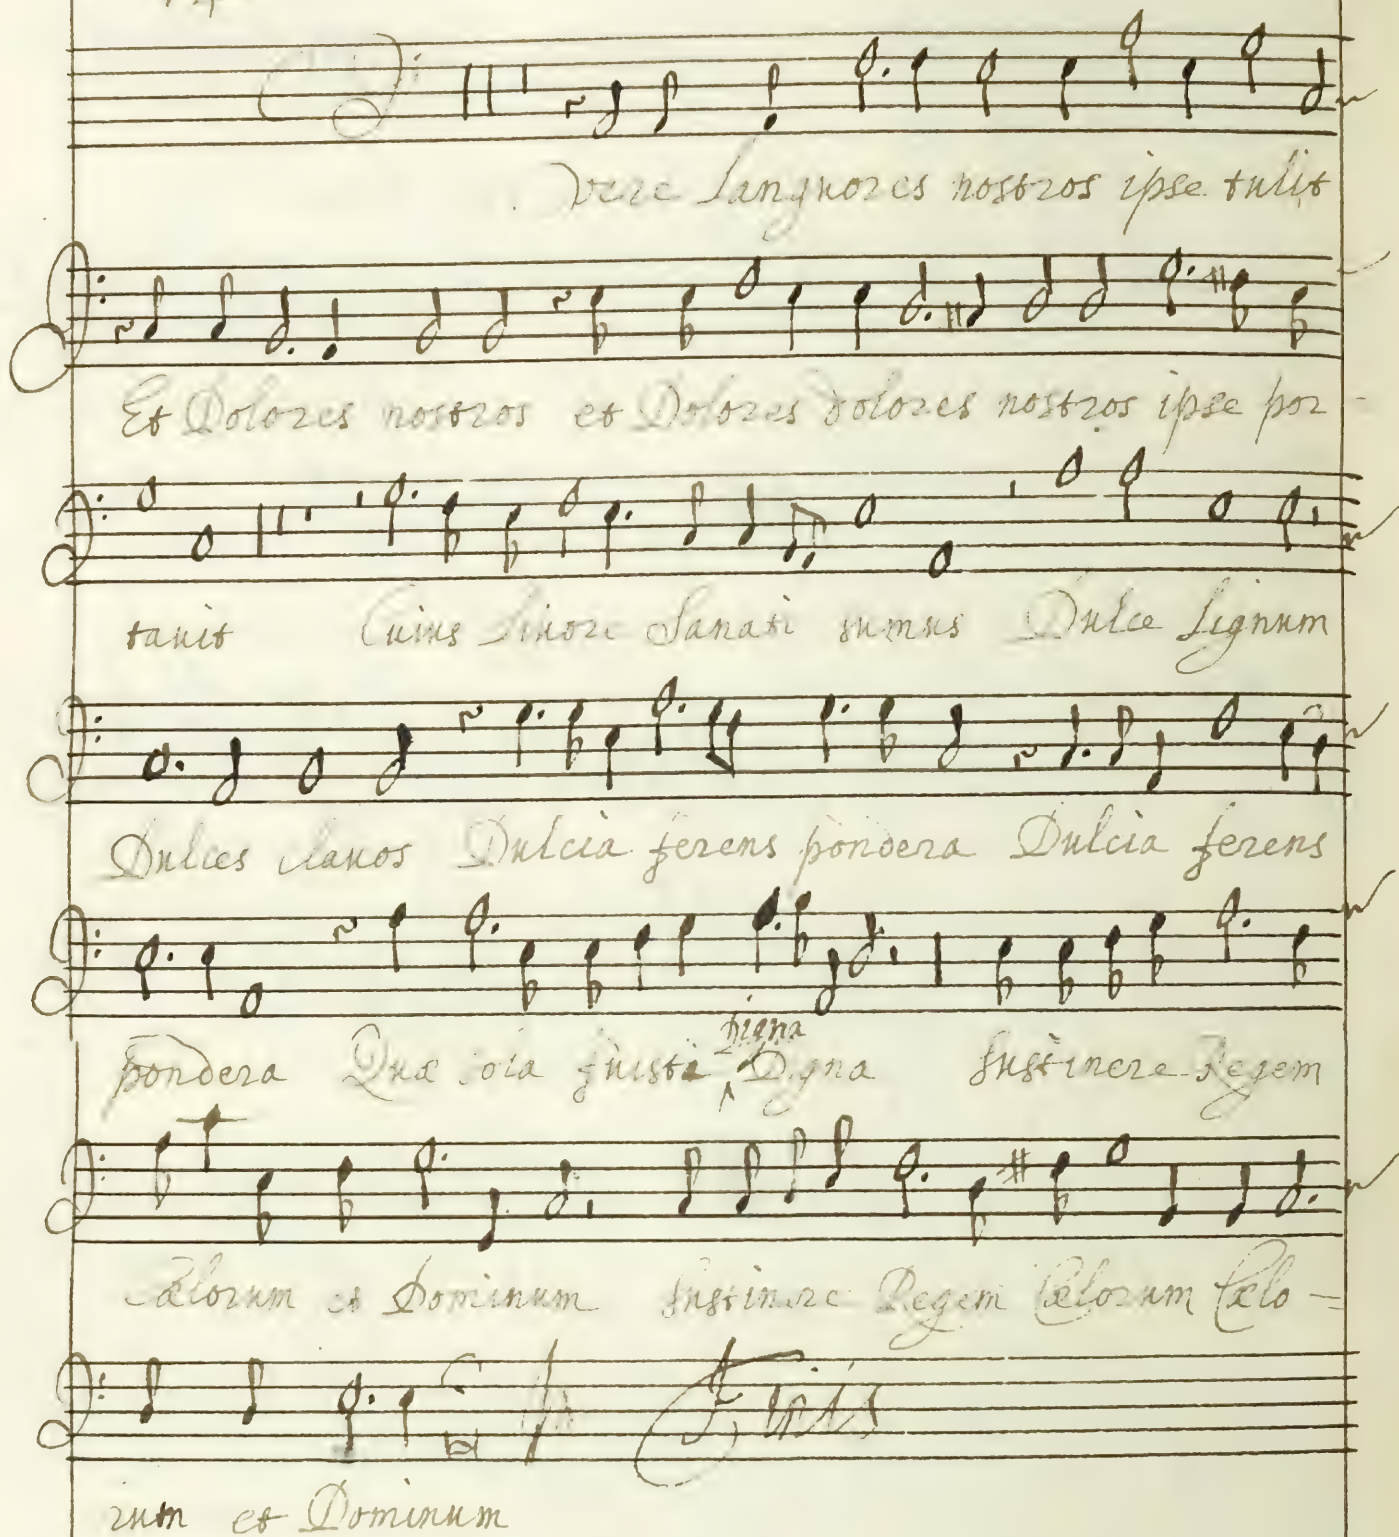 Vere Languores nostros ipse tulit
Et Dolores nostros et Dolores dolores nostros ipse por-
tauit Cuius Liuore Sanati sumus Dulce Lignum
Dulces clauos Dulcia ferens pondera Dulcia ferens
pondera Quæ sola fuisti ^ Digna Digna Sustinere Regem
Cælorum et Dominum Sustinere Regem Cælorum Cælo-
Finis
rum et Dominum